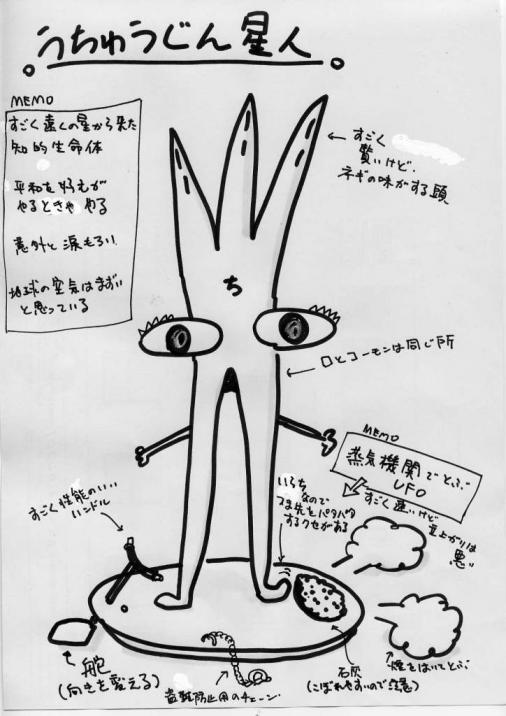 うちゅうじん星人
MEMO
すごく遠くの星から来た
知的生命体
平和を好むが
やるときゃ やる
意外と涙もろい
地球の空気はまずい
と思っている
すごく
賢いけど、
ネギの味がする頭
ち
口とコーモンは同じ所
MEMO
蒸気機関でとぶ
UFO
すごく速いけど
立上がりは
悪い
いらち
なので
つま先をパタパタ
するクセがある
すごく性能のいい
ハンドル
舵
(向きを変える)
盗難防止用のチェーン
石炭
(こぼれやすいので注意)
煙をはいてとぶ